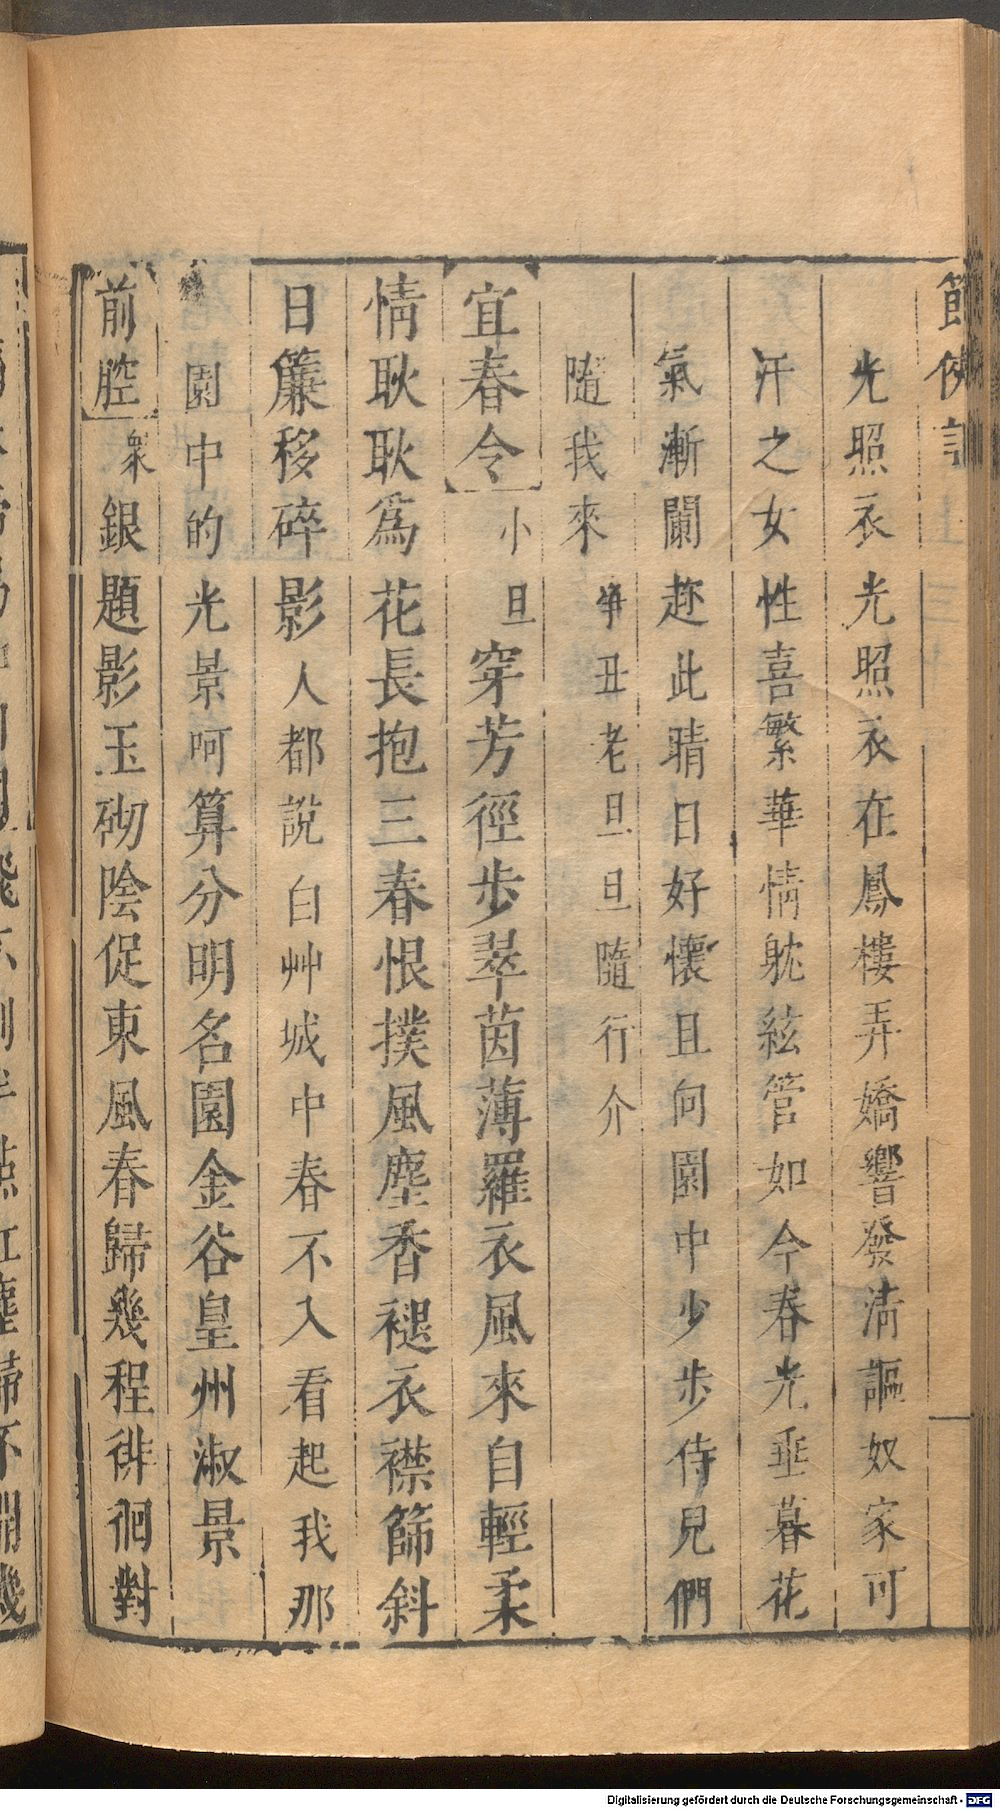 節俠記 上
光照衣光照衣在鳳樓弄嬌響發清謳奴家可
汗之女性喜繁華情躭絃管如今春光垂暮花
氣漸闌趂此晴日好懷且向園中少步侍兒們
隨我來 丑老旦旦隨行介
宜春令 小旦 穿芳徑步翠茵薄羅衣風來自輕柔
情耿耿爲花長抱三春恨撲風塵香褪衣襟篩斜
日簾移碎影人都說白艸城中春不入看起我那
園中的光景呵算分明名園金谷皇州淑景
前腔 衆 銀題影玉砌陰促東風春歸幾程徘徊對
Digitalisierung gefördert durch die Deutsche Forschungsgemeinschaft - DFG